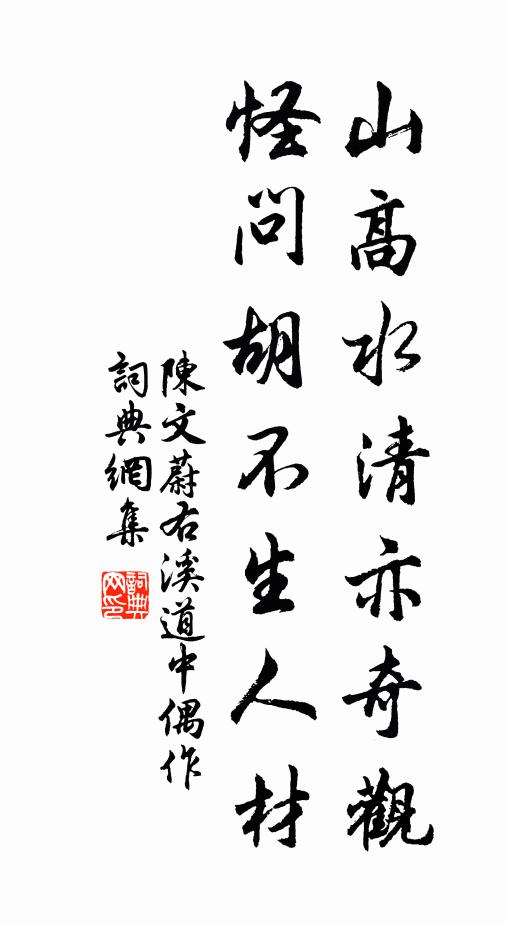 山高水清亦奇觀
怪問胡不生人材
陳文蔚右溪道中偶作
詞典網集
詞典
网印